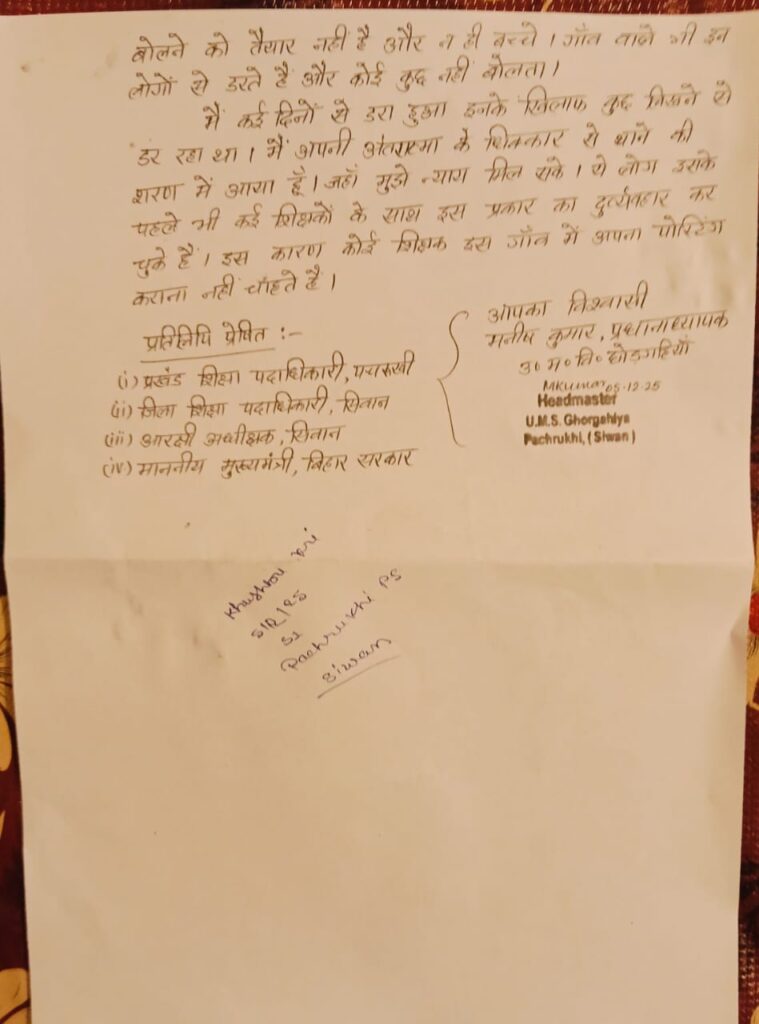 बोलने को तैयार नहीं है और न ही बच्चे। गाँव वाले भी इन
लोगों से डरते हैं और कोई कुछ नहीं बोलता।
मैं कई दिनों से डरा हुआ इनके खिलाफ कुछ लिखने से
डर रहा था। मैं अपनी अंतरात्मा के धिक्कार से थाने की
शरण में आया हूँ। जहाँ मुझे न्याय मिल सके। ये लोग इसके
पहले भी कई शिक्षकों के साथ इस प्रकार का दुर्व्यवहार कर
चुके हैं। इस कारण कोई शिक्षक इस गाँव में अपना पोस्टिंग
कराना नहीं चाहते है।
आपका विश्वासी
मनीष कुमार, प्रधानाध्यापक
उ० म० वि० घोड़गहियाँ
MKumar 05-12-25
Headmaster
U.M.S. Ghorgahiya
Pachrukhi, (Siwan)
प्रतिलिपि प्रेषित :-
(i) प्रखंड शिक्षा पदाधिकारी, पचरूखी
(ii) जिला शिक्षा पदाधिकारी, सिवान
(iii) आरक्षी अधीक्षक, सिवान
(iv) माननीय मुख्यमंत्री, बिहार सरकार
5/12/25
SI
Pachrukhi PS
Siwan